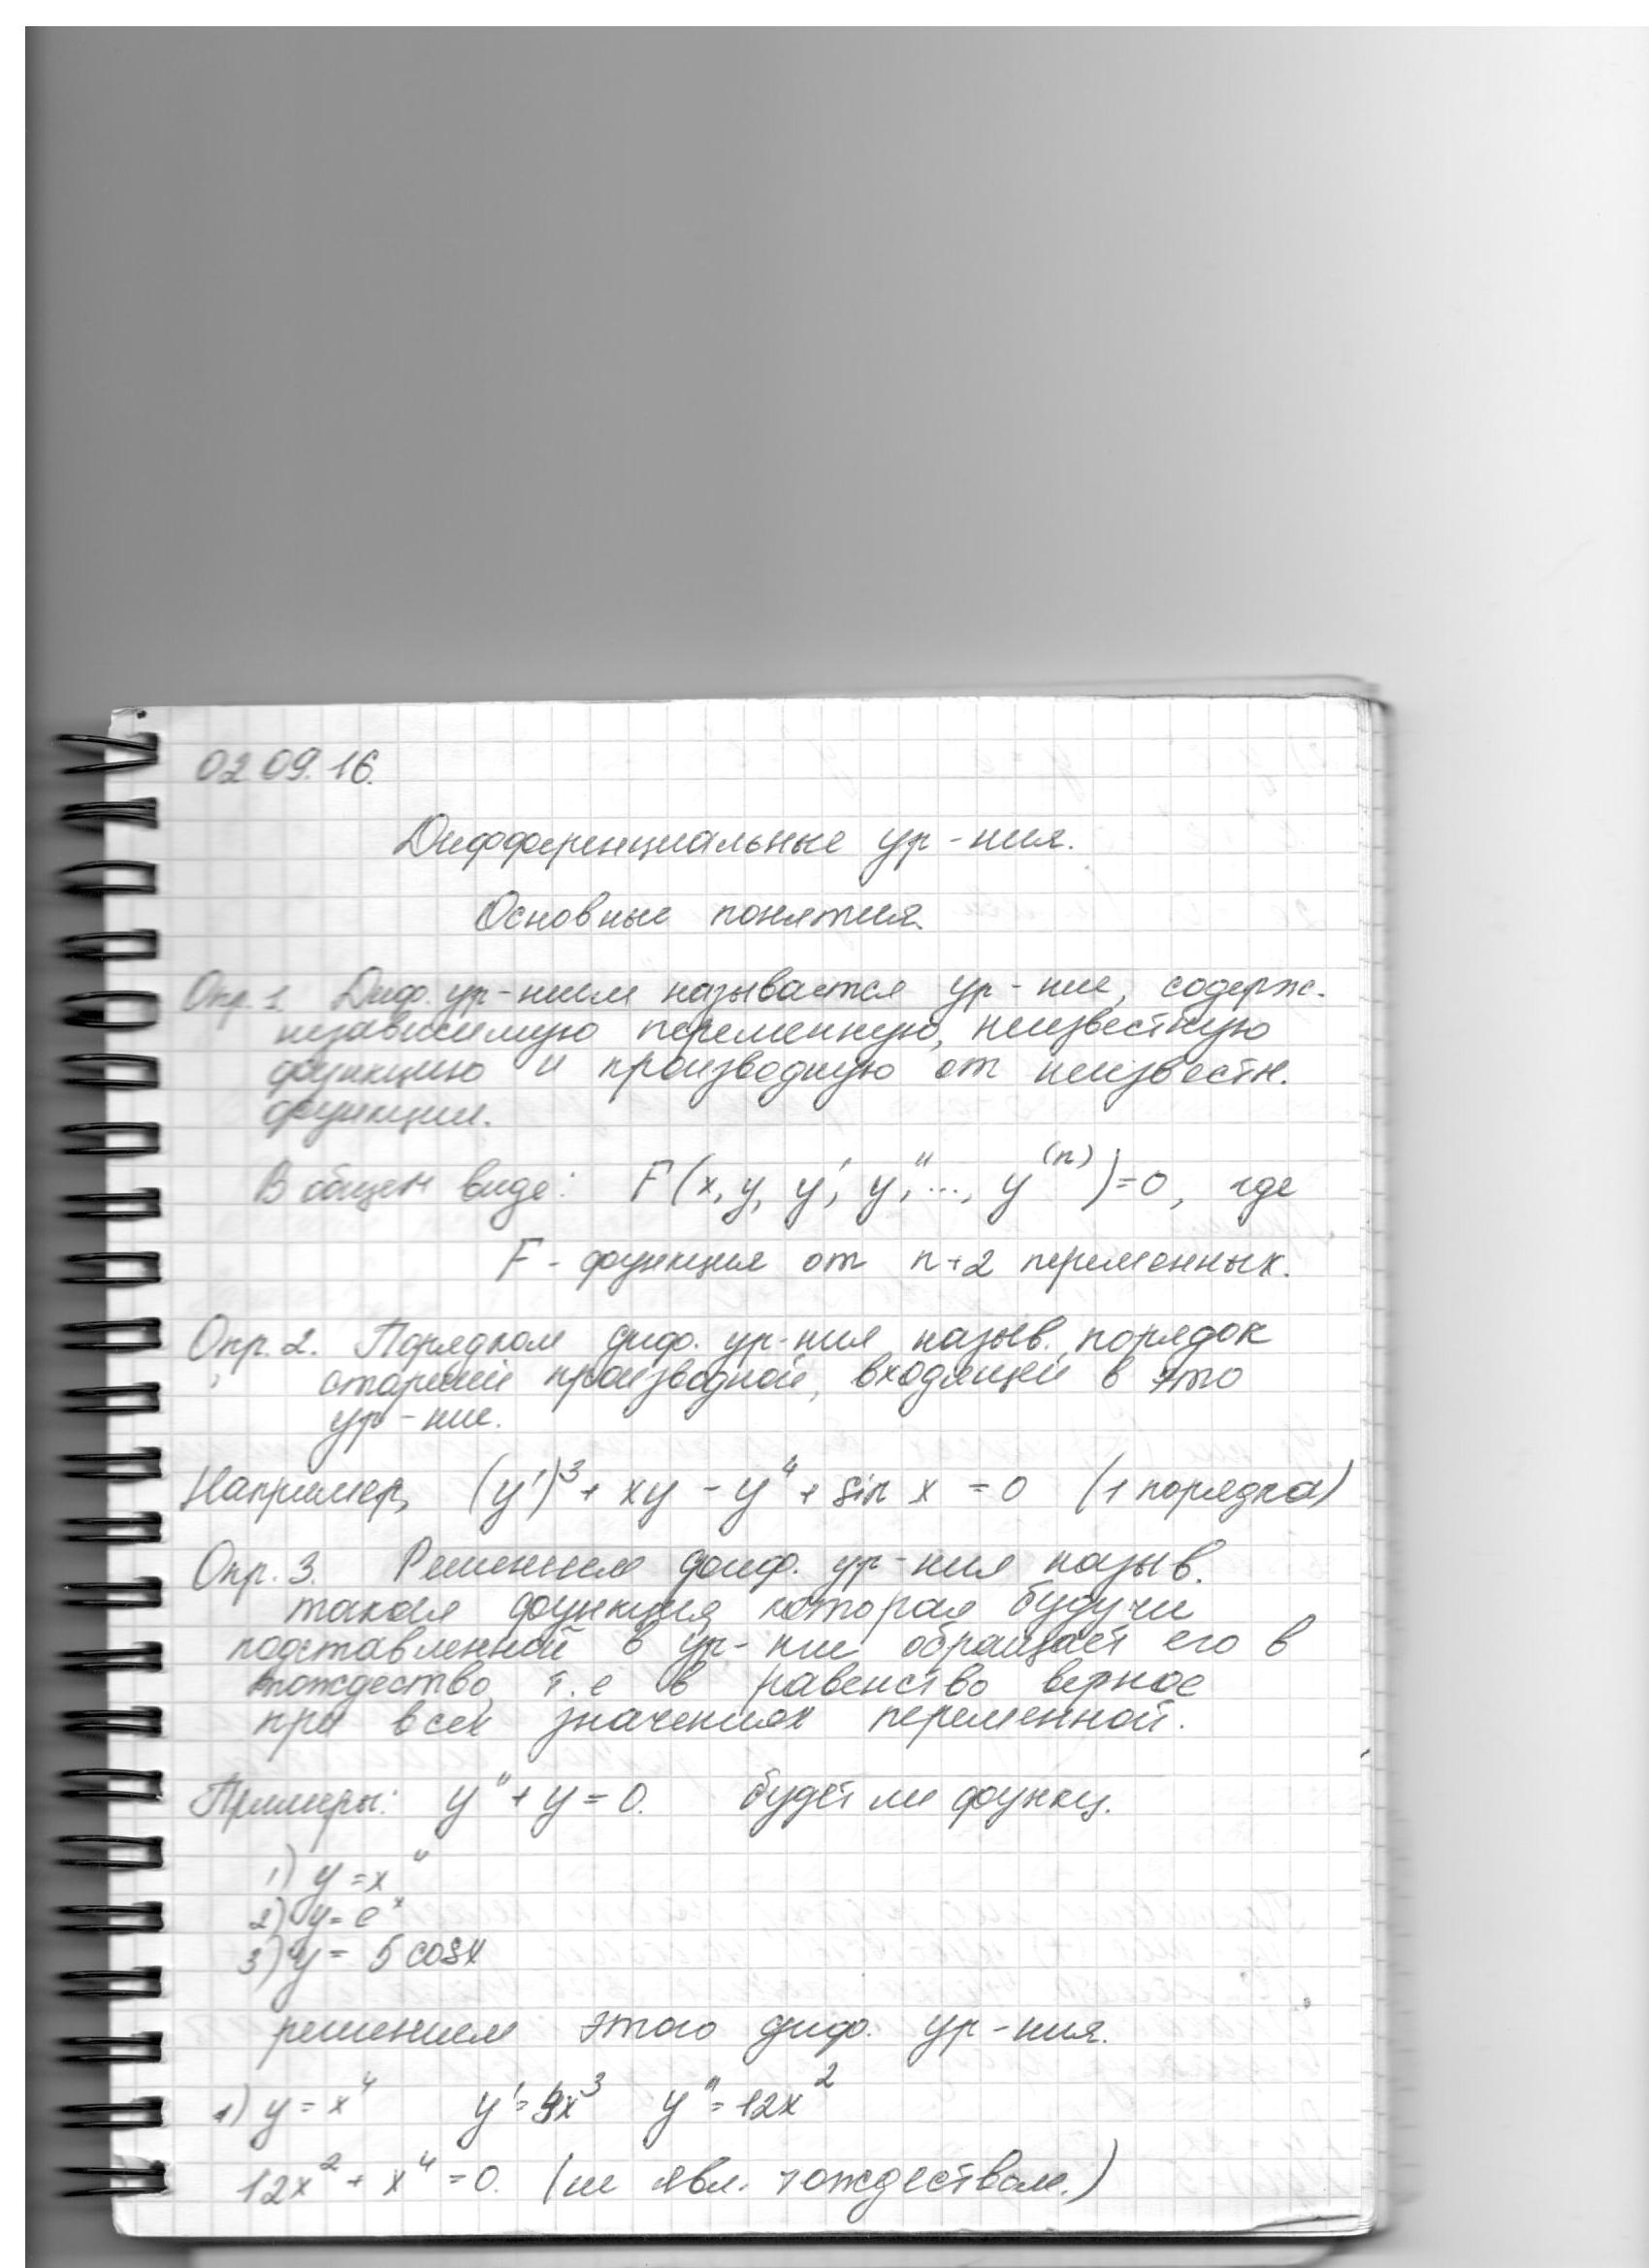 02 09. 16.
Дифференциальные ур-ния.
Основные понятия.
Опр. 1. Диф. ур-нием называется ур-ние, содерж.
независимую переменную, неизвестную
функцию и производную от неизвестн.
функции.
В общем виде: F(x, y, y', y'', ..., y⁽ⁿ⁾)=0, где
F - функция от n+2 переменных.
Опр. 2. Порядком диф. ур-ния назыв. порядок
старшей производной, входящей в это
ур-ние.
Например, (y')³ + xy - y⁴ + sin x = 0 (1 порядка)
Опр. 3. Решением диф. ур-ния назыв.
такая функция, которая будучи
подставленной в ур-ние обращает его в
тождество, т.е в равенство верное
при всех значениях переменной.
Примеры: y'' + y = 0. будет ли функц.
1) y = x⁴
2) y = eˣ
3) y = 5 cosx
решением этого диф. ур-ния.
1) y = x⁴ y' = 4x³ y'' = 12x²
12x² + x⁴ = 0. (не явл. тождеством.)